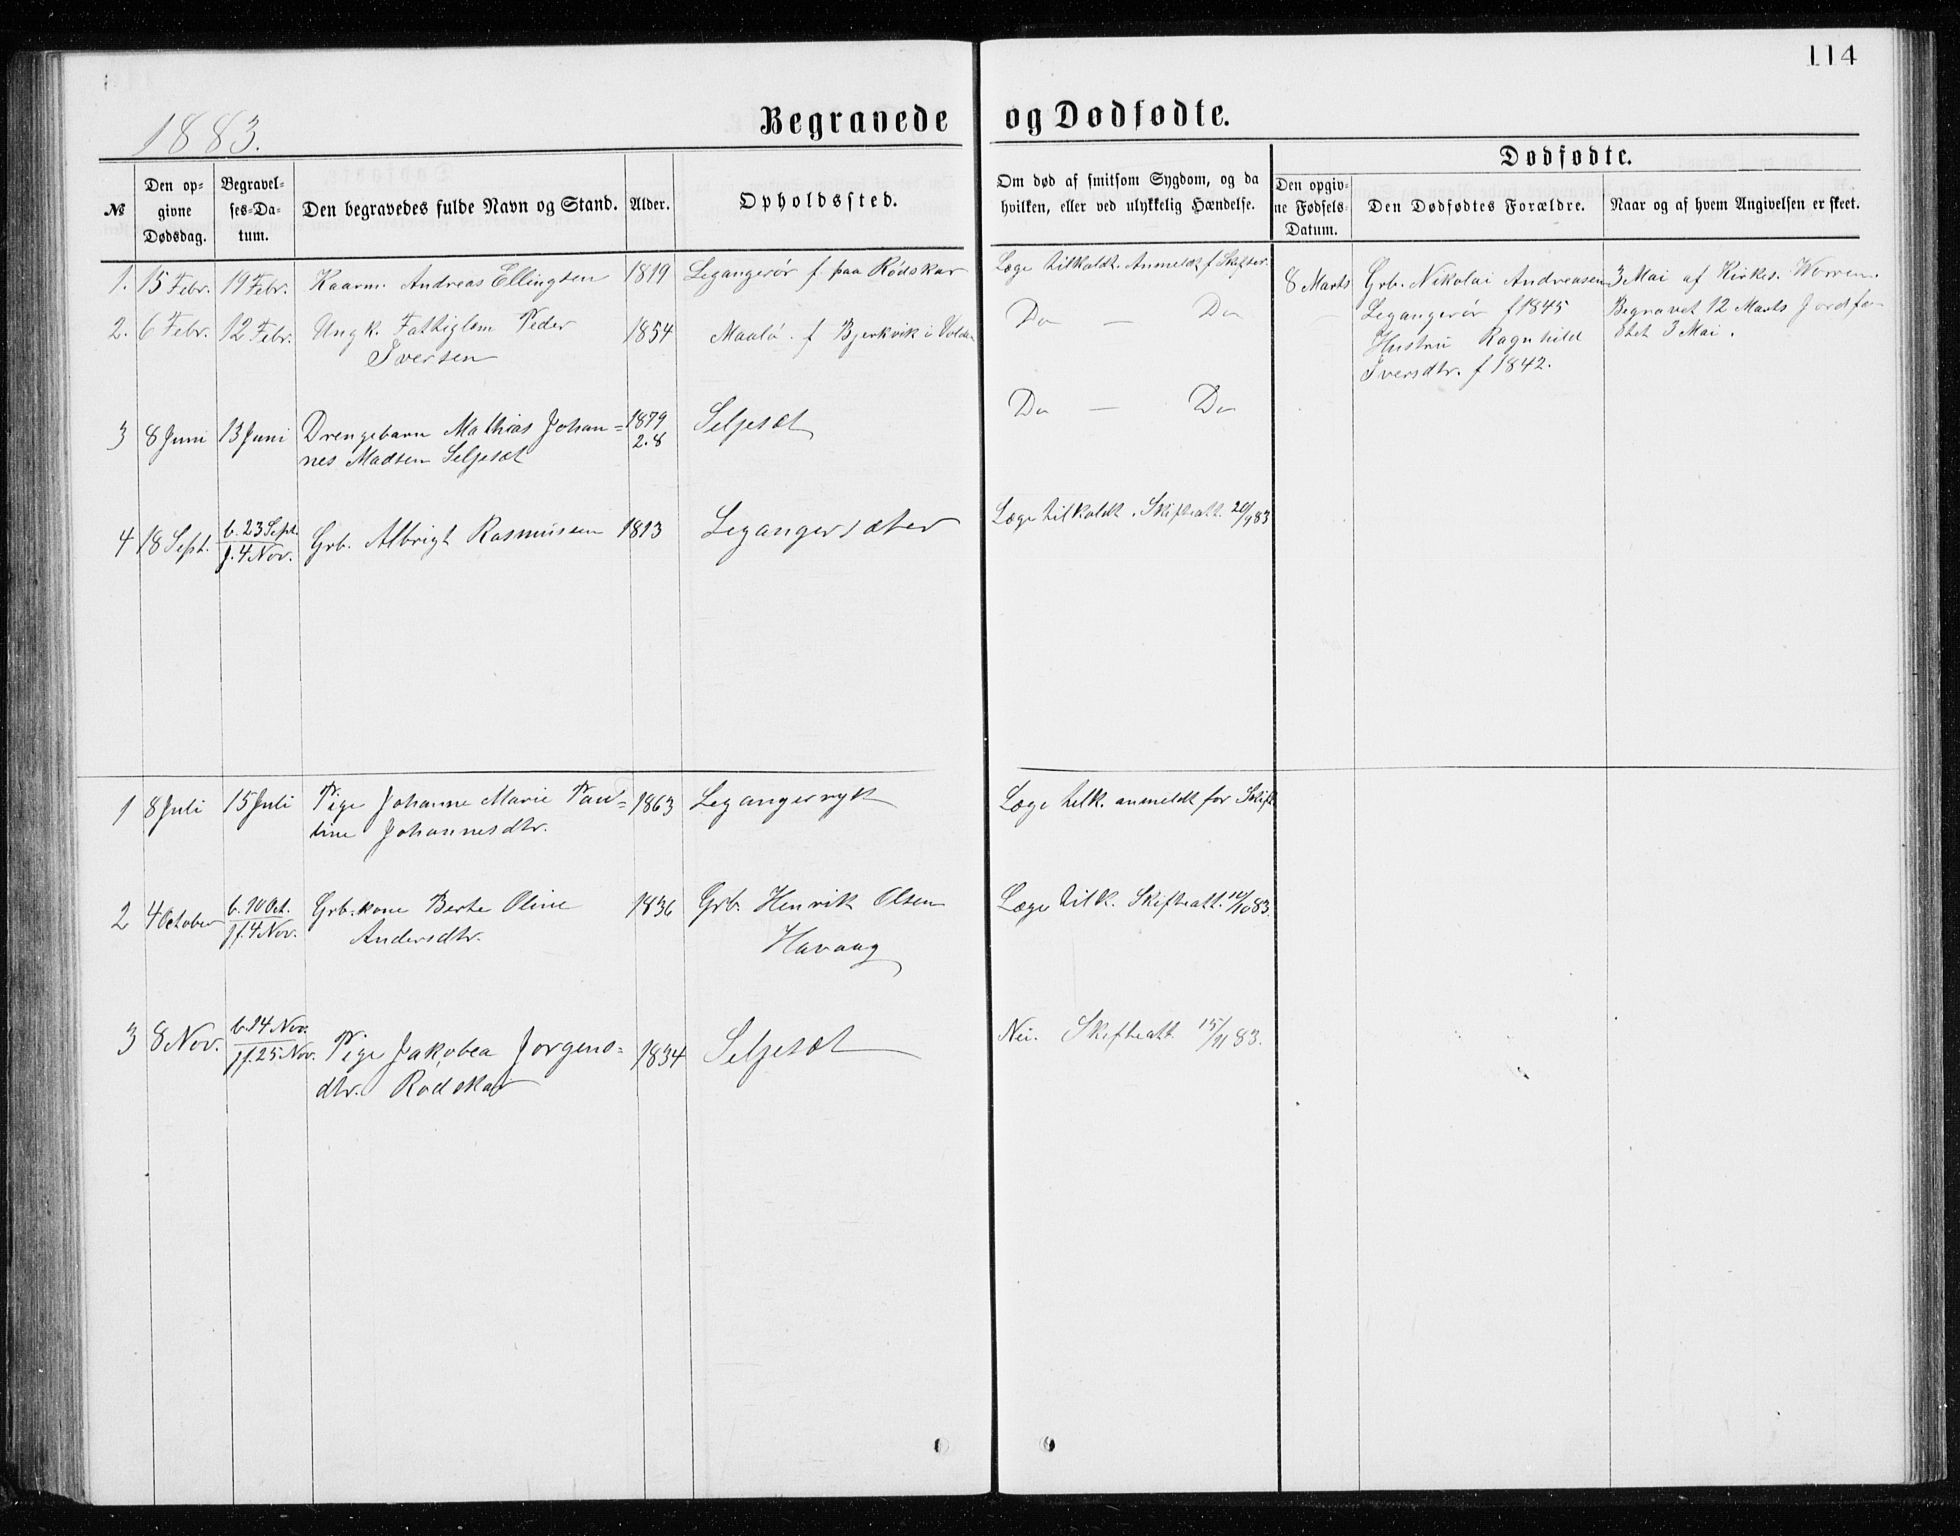 114
1883.
Begravede og Dødfødte.
№
Den op-
givne
Dødsdag.
Begravel-
ses-Da-
tum.
Den begravedes fulde Navn og Stand.
Alder.
Opholdssted.
Om død af smitsom Sygdom, og da
hvilken, eller ved ulykkelig Hændelse.
Dødfødte.
Den opgiv-
ne Fødsels-
Datum.
Den Dødfødtes Forældre.
Naar og af hvem Angivelsen er skeet.
1. 15 Febr. 19 Febr. Kaarm. Andreas Ellingsen 1819 Legangerør f. paa Rødskar Læge tilkaldt. Anmeldt f. Skifter.
2. 6 Febr. 12 Febr. Ungk. Fattiglem Peder 1854 Maalø. f. Bjerkvik i Volden Do — Do
Iversen
8 Marts Grb. Nikolai Andreasen 3 Mai af Kirkes. Worren.
Legangerør f 1845 Begravet 12 Marts Jordfæ-
Hustru Ragnhild stet 3 Mai.
Iversdtr. f 1842.
3 8 Juni 13 Juni Drengebarn Mathias Johan= 1879 Seljesæt Do — Do
nes Madsen Seljesæt 2.8
4 18 Sept. b. 23 Sept. Grb. Albrigt Rasmussen 1813 Legangersæter Læge tilkaldt. Skifteatt. 20/9 83
j. 4 Nov.
1 8 Juli 15 Juli Pige Johanne Marie Pau= 1863 Legangernyk Læge tilk. anmeldt for Skift
line Johannesdtr.
2 4 October b. 10 Oct. Grb.kone Berte Oline 1836 Grb. Henrik Olsen Læge tilk. Skifteatt. 10/10 83.
jf. 4 Nov. Andersdtr. Havaag
3 8 Nov. b. 14 Nov. Pige Jakobea Jørgens= 1834 Seljesæt Nei. Skifteatt. 15/11 83.
jf. 25 Nov. dtr. Rødskar